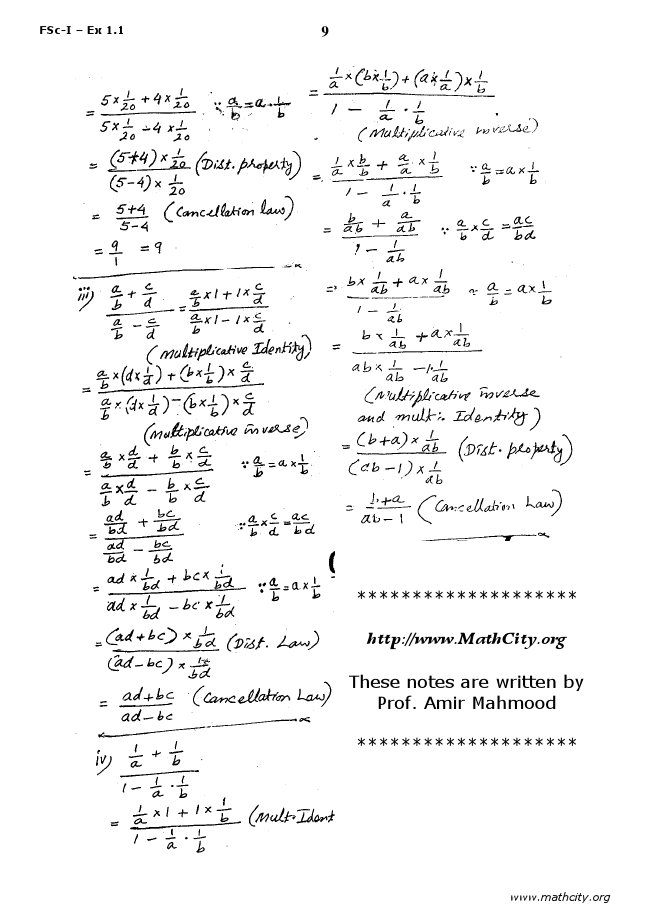 FSc-I – Ex 1.1
9
= (5×1/20 + 4×1/20) / (5×1/20 - 4×1/20) ∵ a/b = a·1/b
= ((5+4)×1/20) / ((5-4)×1/20) (Dist. property)
= (5+4)/(5-4) (Cancellation law)
= 9/1 = 9
iii) (a/b + c/d) / (a/b - c/d) = (a/b×1 + 1×c/d) / (a/b×1 - 1×c/d)
(Multiplicative Identity)
= (a/b×(d×1/d) + (b×1/b)×c/d) / (a/b×(d×1/d) - (b×1/b)×c/d)
(Multiplicative inverse)
= (a/b×d/d + b/b×c/d) / (a/b×d/d - b/b×c/d) ∵ a/b = a×1/b
= (ad/bd + bc/bd) / (ad/bd - bc/bd) ∵ a/b×c/d = ac/bd
= (ad×1/bd + bc×1/bd) / (ad×1/bd - bc×1/bd) ∵ a/b = a×1/b
= ((ad+bc)×1/bd) / ((ad-bc)×1/bd) (Dist. Law)
= (ad+bc)/(ad-bc) (Cancellation Law)
iv) (1/a + 1/b) / (1 - 1/a·1/b)
= (1/a×1 + 1×1/b) / (1 - 1/a·1/b) (Mult. Ident
= (1/a×(b×1/b) + (a×1/a)×1/b) / (1 - 1/a·1/b)
(Multiplicative inverse)
= (1/a×b/b + a/a×1/b) / (1 - 1/a·1/b) ∵ a/b = a×1/b
= (b/ab + a/ab) / (1 - 1/ab) ∵ a/b×c/d = ac/bd
= (b×1/ab + a×1/ab) / (1 - 1/ab) ∵ a/b = a×1/b
= (b×1/ab + a×1/ab) / (ab×1/ab - 1·1/ab)
(Multiplicative inverse
and mult: Identity)
= ((b+a)×1/ab) / ((ab-1)×1/ab) (Dist. property)
= (b+a)/(ab-1) (Cancellation Law)
********************
http://www.MathCity.org
These notes are written by
Prof. Amir Mahmood
********************
www.mathcity.org